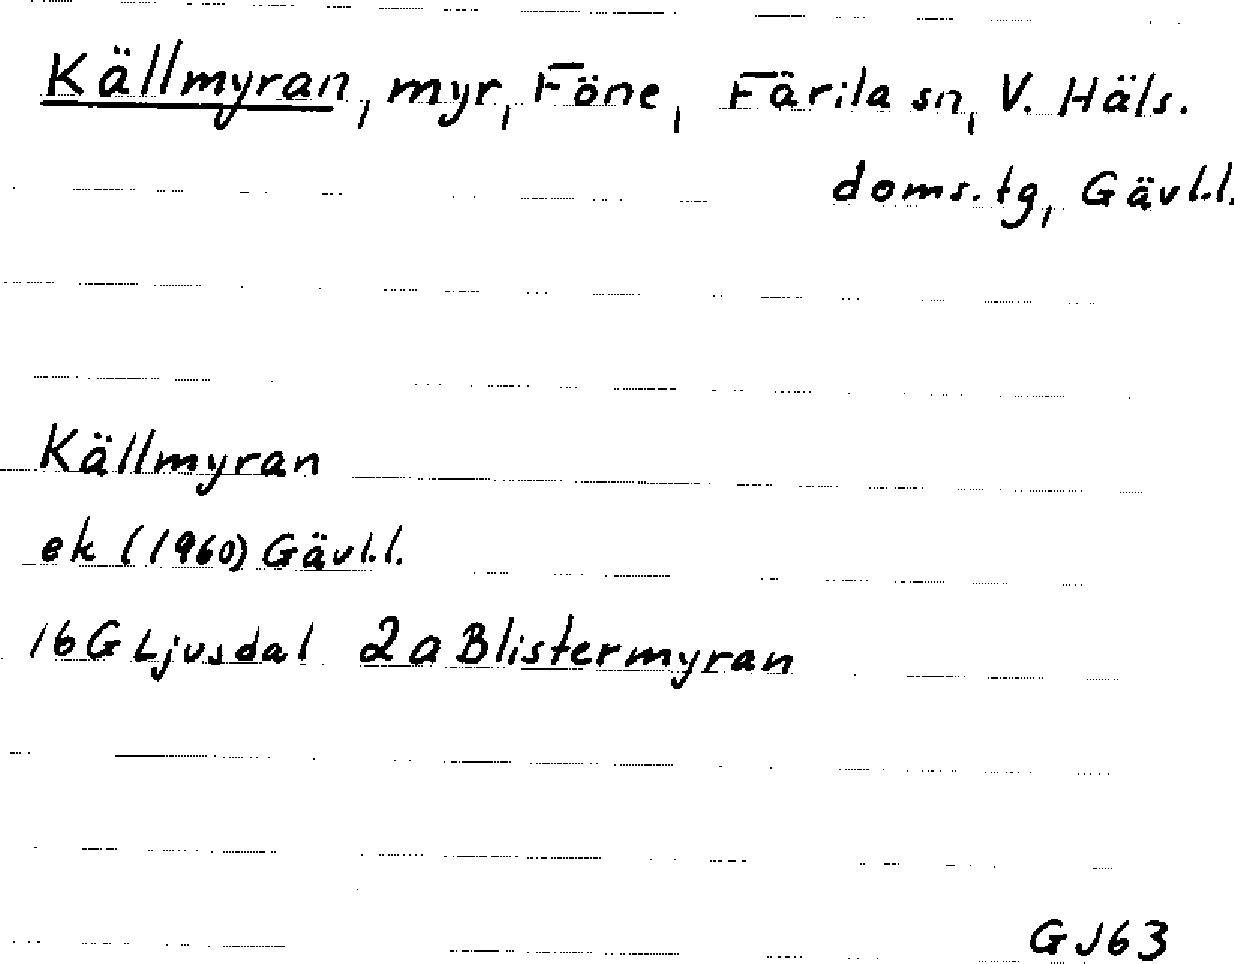 Källmyran, myr, Föne, Färila sn, V. Häls.
doms.tg, Gävl.l.
Källmyran
ek (1960) Gävl.l.
16G Ljusdal 2a Blistermyran
GJ63